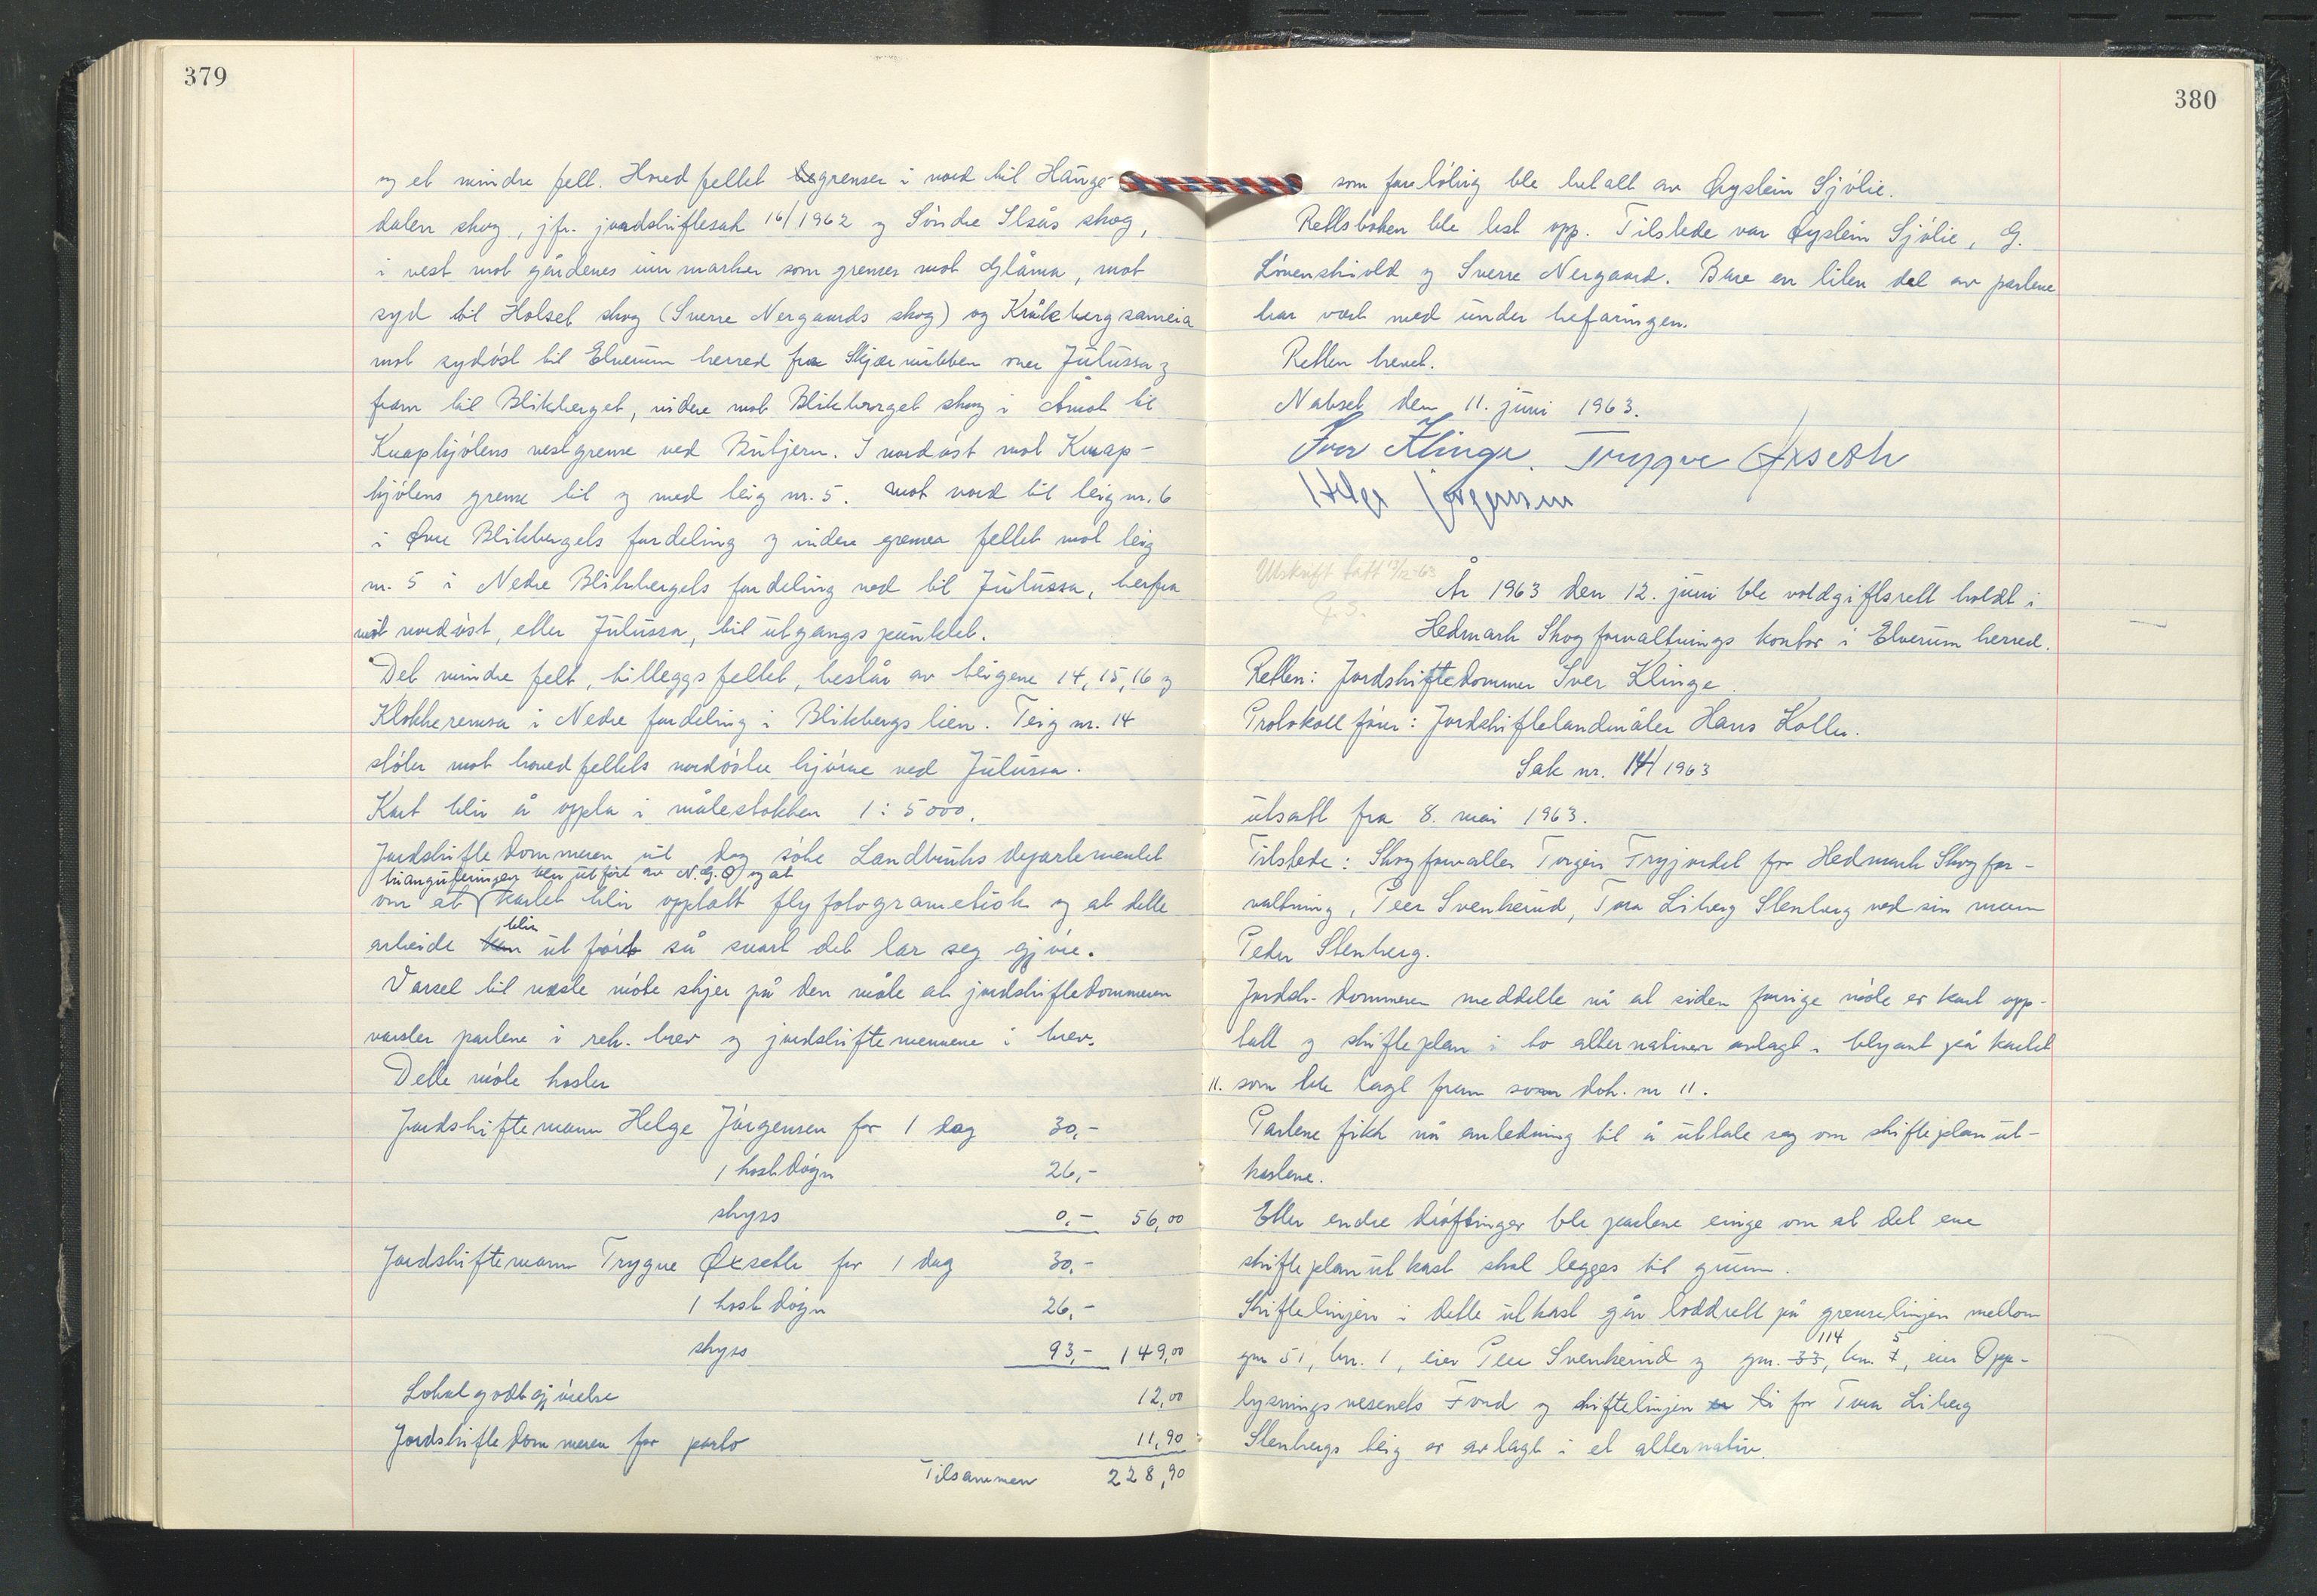 379
og et mindre felt. Hovedfeltet begrenser i nord til Hänge-
dalen skog, jfr. jordskiftesak 16/1962 og Söndre Ilsås skog,
i vest mot gårdenes innmarker som grenser mot Glåma, mot
syd til Holset skog (Sverre Nergaards skog) og Kråkbergsameia
mot sydöst til Elverum herred fra Skjærnubben over Julussa og
fram til Blikberget, videre mot Blikberget skog i Åmot til
Knapkjölens vestgrense ved Butjern. I nordöst mot Knap-
kjölens grense til og med teig nr. 5. Mot nord til teig nr. 6
i Övre Blikbergets fordeling og videre grenser feltet mot teig
nr. 5 i Nedre Blikbergets fordeling ned til Julussa, herfra
mot nordöst, etter Julussa, til utgangspunktet.
Det mindre felt, tilleggsfeltet, består av teigene 14, 15, 16 og
Klokkeremsa i Nedre fordeling i Blikbergslien. Teig nr. 14
stöter mot hovedfeltets nordöstre hjörne ved Julussa.
Kart blir å oppta i målestokken 1:5000.
Jordskiftedommeren vil dog söke Landbruksdepartementet
trianguleringen blir utfört av N.G.O og at
om at kartet blir opptatt flyfotogrametisk og at dette
blir
arbeide kan utfört så snart det lar seg gjöre.
Varsel til næste möte skjer på den måte at jordskiftedommeren
varsler partene i rek. brev og jordskiftemennene i brev.
Dette möte koster
Jordskiftemann Helge Jörgensen for 1 dag 30,-
1 kostdögn 26,-
skyss 0,- 56,00
Jordskiftemann Trygve Öxseth for 1 dag 30,-
1 kostdögn 26,-
skyss 93,- 149,00
Lokalgodtgjörelse 12,00
Jordskiftedommeren for porto 11,90
Tilsammen 228,90
380
som forelöbig ble betalt av Öystein Sjölie.
Rettsboken ble lest opp. Tilstede var Öystein Sjölie, G.
Lövenskiold og Sverre Nergaard. Bare en liten del av partene
har vært med under befaringen.
Retten hevet.
Nabset den 11. juni 1963.
Iver Klinge. Trygve Øxseth
Helge Jørgensen
Utskrift tatt 13/12-63
År 1963 den 12. juni ble voldgiftsrett holdt i
Hedmark Skogforvaltnings kontor i Elverum herred.
Retten: Jordskiftedommer Iver Klinge.
Protokollförer: Jordskiftelandmåler Hans Koller.
Sak nr. 14/1963
utsatt fra 8. mai 1963.
Tilstede: Skogforvalter Torgeir Fryjordet for Hedmark Skogfor-
valtning, Peer Svenkerud, Tora Liberg Stenberg ved sin mann
Peder Stenberg.
Jordsk. dommeren meddelte nå at siden forrige möte er kart opp-
tatt og skifteplan i to alternativer avlagt i blyant på kartet
11. som ble lagt frem som dok. nr 11.
Partene fikk nå anledning til å uttale seg om skifteplanut-
kastene.
Etter endre dröftinger ble partene einge om at det ene
skifteplanutkast skal legges til grunn.
Skiftelinjen i dette utkast går loddrett på grenselinjen mellom
114 5
gnr 51, bnr. 1, eier Peer Svenkerud og gnr. 33, bnr. 7, eier Opp-
lysningsvesenets Fond og skiftelinjen er ti for Tora Liberg
Stenbergs teig er avlagt i et alternativ.